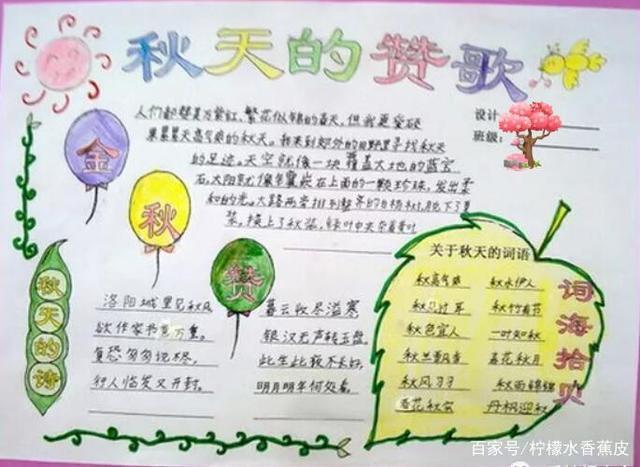 秋天的赞歌
设计:
班级:
人们都赞美万紫红、繁花似锦的春天,但我更爱硕
果累累天高气爽的秋天。我来到郊外的田野里寻找秋天
的足迹。天空就像一块覆盖大地的蓝宝
石,太阳就像在上面的一颗珍珠,发出柔
和的光。大路两旁排列整齐的白杨树,脱下了
装,换上了秋装,绿叶中夹着黄叶
金
秋
赞
秋天的诗
洛阳城里见秋风
欲作家书意万重。
复恐匆匆说不尽,
行人临发又开封。
暮云收尽溢寒
银汉无声转玉盘。
此生此夜不长好,
明月明年何处看。
关于秋天的词语
秋高气爽 秋水伊人
秋色宜人 一叶知秋
秋兰 春花秋月
秋风习习 秋雨绵绵
丹枫迎秋
词海拾贝
百家号/柠檬水香蕉皮